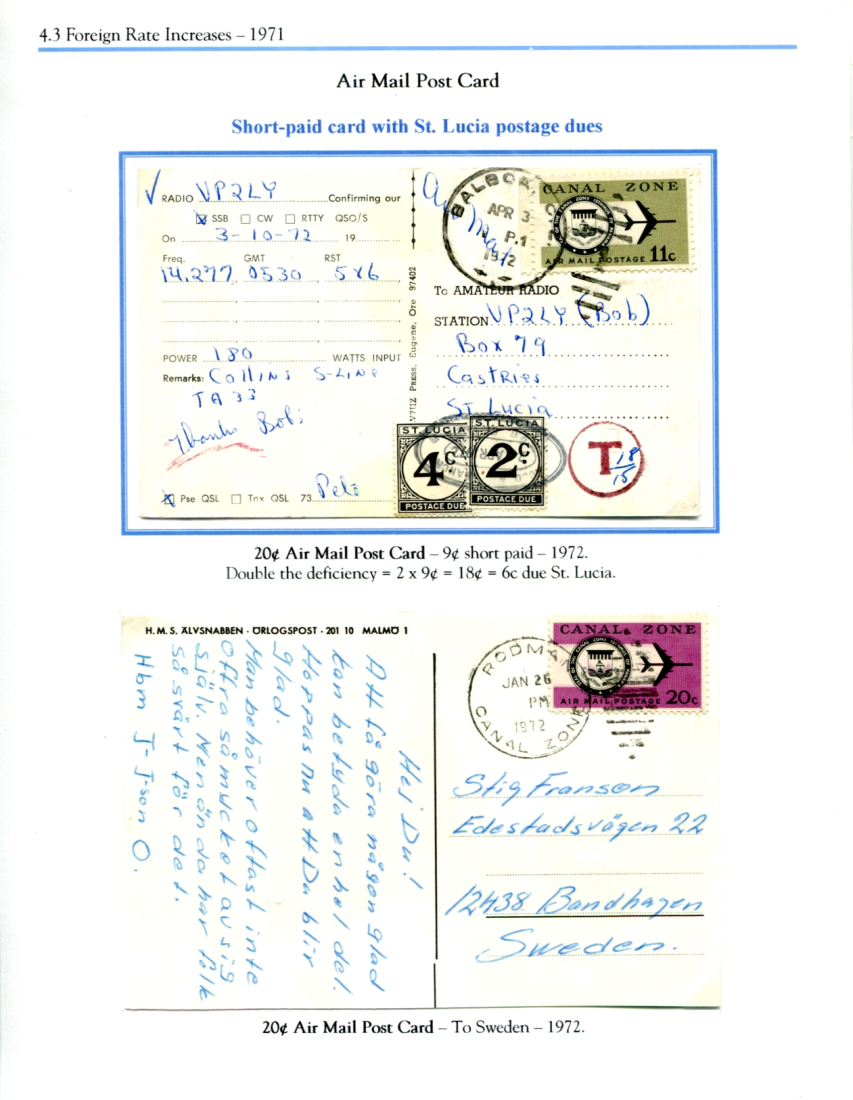 4.3 Foreign Rate Increases – 1971
Air Mail Post Card
Short-paid card with St. Lucia postage dues
RADIO VP2LY Confirming our
SSB CW RTTY QSO/S
On 3-10-72 19
Freq. GMT RST
14.277 0530 5x6
POWER 180 WATTS INPUT
Remarks: Collins S-Line
TA 33
Thanks Bob;
Pse QSL Tnx QSL 73 Pete
PRESS, Eugene, Ore 97402
Air Mail
BALBOA, C.Z.
APR 3
P.1
1972
CANAL ZONE
AIR MAIL POSTAGE 11c
To AMATEUR RADIO
STATION VP2LY (Bob)
Box 79
Castries
St Lucia
ST. LUCIA
4c.
POSTAGE DUE
ST. LUCIA
2c.
POSTAGE DUE
T 18/15
20¢ Air Mail Post Card – 9¢ short paid – 1972.
Double the deficiency = 2 x 9¢ = 18¢ = 6c due St. Lucia.
H.M.S. ÄLVSNABBEN · ÖRLOGSPOST · 201 10 MALMÖ 1
Hej Du!
Att få göra någon glad
kan betyda en hel del.
Hoppas nu att Du blir
glad.
Man behöver oftast inte
offra så mycket av sig
själv. Men ändå har folk
så svårt för det.
Hbm J-J-son O.
RODMAN
JAN 26
PM
1972
CANAL ZONE
CANAL ZONE
AIR MAIL POSTAGE 20c
Stig Franson
Edestadsvägen 22
12438 Bandhagen
Sweden.
20¢ Air Mail Post Card – To Sweden – 1972.